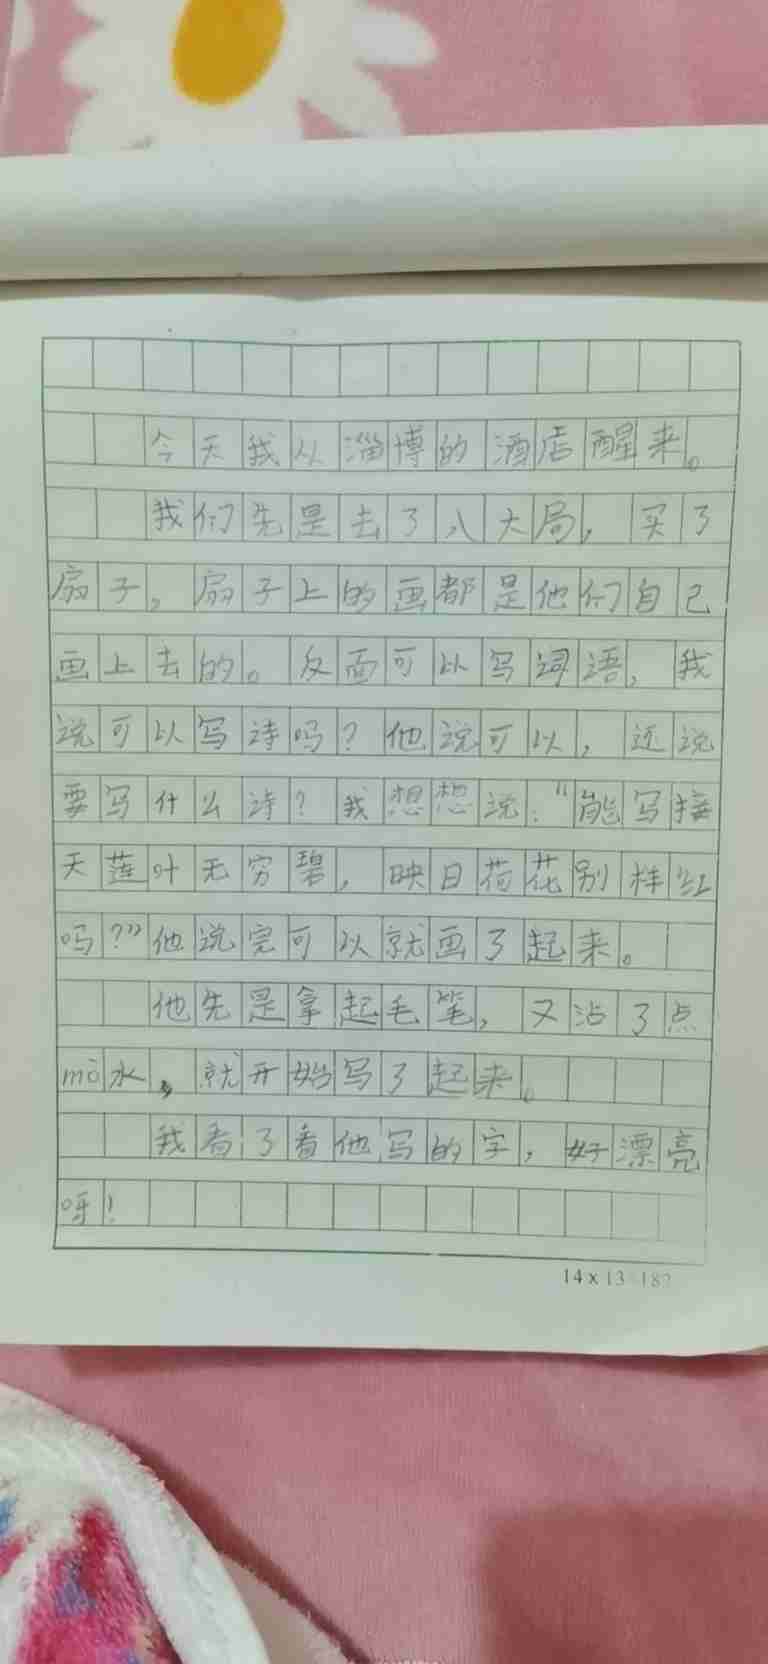 今天我从淄博的酒店醒来。
我们先是去了八大局，买了
扇子。扇子上的画都是他们自己
画上去的。反面可以写词语，我
说可以写诗吗？他说可以，还说
要写什么诗？我想想说：“能写接
天莲叶无穷碧，映日荷花别样红
吗？”他说完可以就画了起来。
他先是拿起毛笔，又沾了点
mò水，就开始写了起来。
我看了看他写的字，好漂亮
呀！
14×13=182